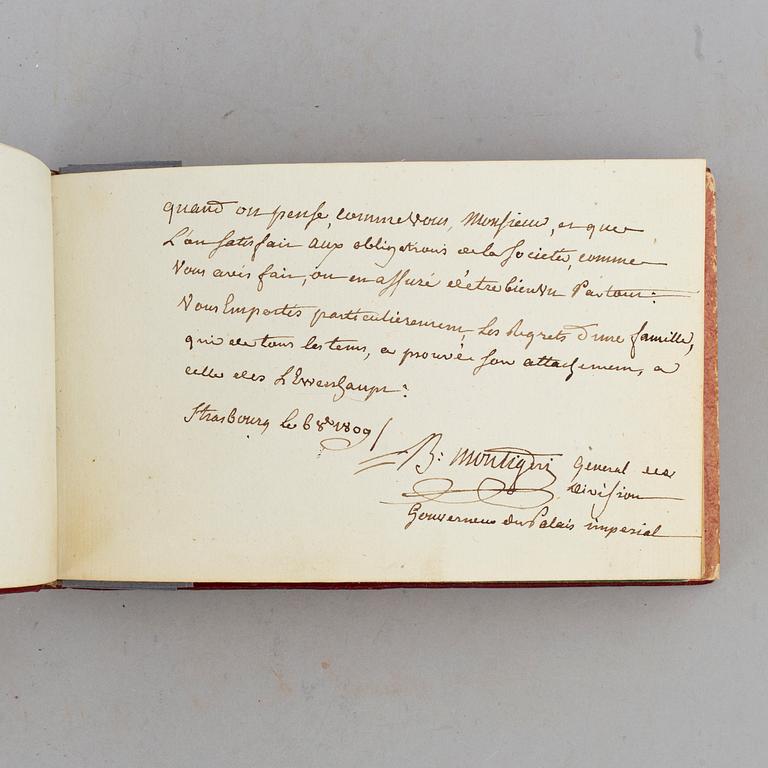 quand on pense, comme vous, Monsieur, et que
L'on satisfait aux obligations de la Societé, comme
Vous avés fait, on en assuré d'etre bien vu Partout:
Vous Emportés particulièrement, Les Regrets d'une famille,
qui de tous les tems, a prouvée son attachement, a
celle des L'Ewenhaupt:
Strasbourg le 6 8re 1809/
B: Montigni General de
Division
Gouverneur du Palais imperial